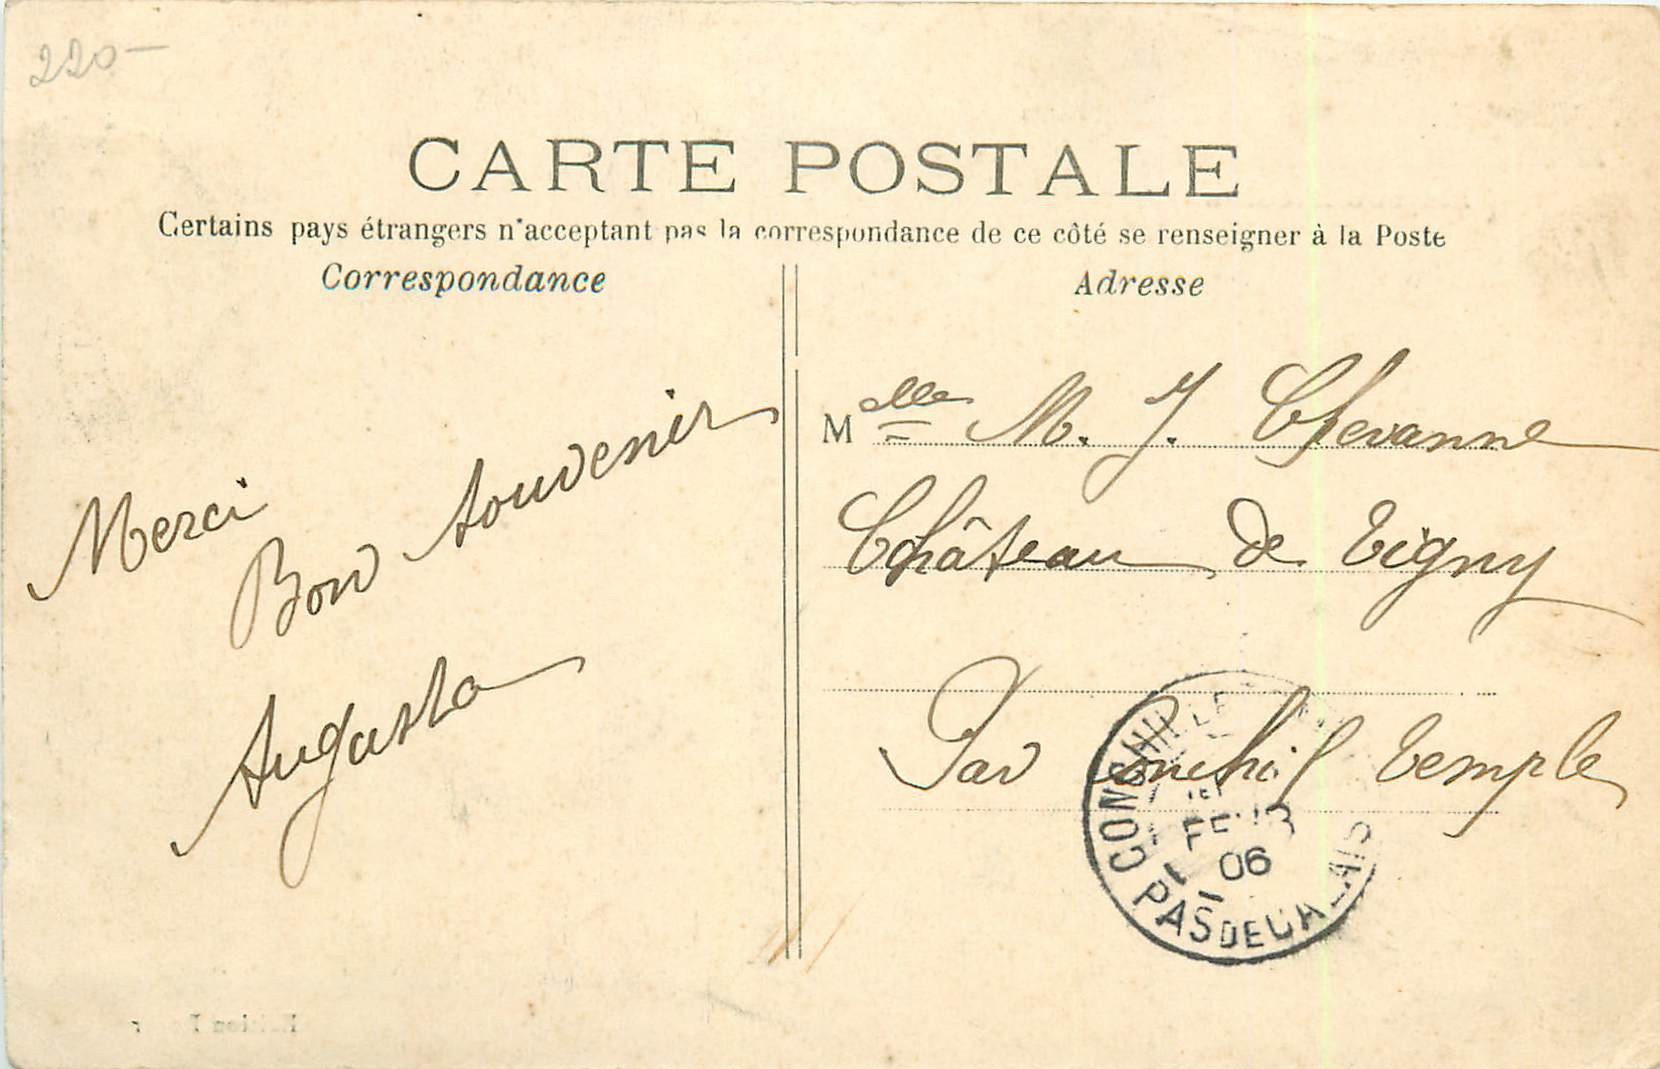 220-
CARTE POSTALE
Certains pays étrangers n'acceptant pas la correspondance de ce côté se renseigner à la Poste
Correspondance
Adresse
Merci
Bon souvenir
Augusta
Melle M. J. Chevanne
Château de Tigny
Par Conchil temple
CONCHIL LE
FEVR
06
PAS DE CALAIS